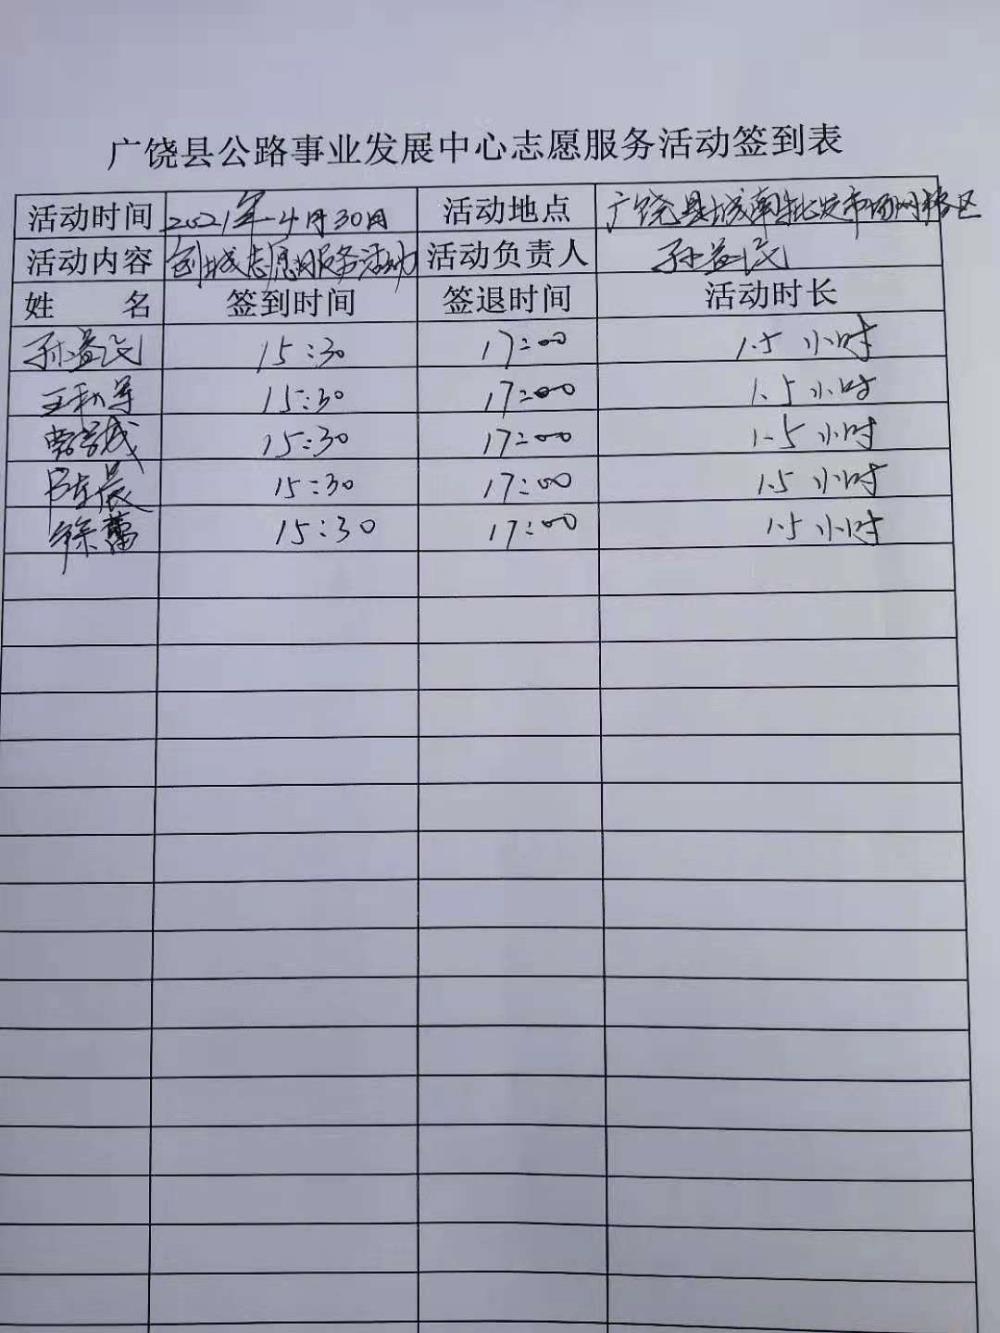 广饶县公路事业发展中心志愿服务活动签到表
活动时间 2021年4月30日 活动地点 广饶县城南批发市场网格区
活动内容 创城志愿服务活动 活动负责人 孙益民
姓 名 签到时间 签退时间 活动时长
孙益民 15:30 17:00 1.5小时
15:30 17:00 1.5小时
15:30 17:00 1.5小时
15:30 17:00 1.5小时
徐蕾 15:30 17:00 1.5小时